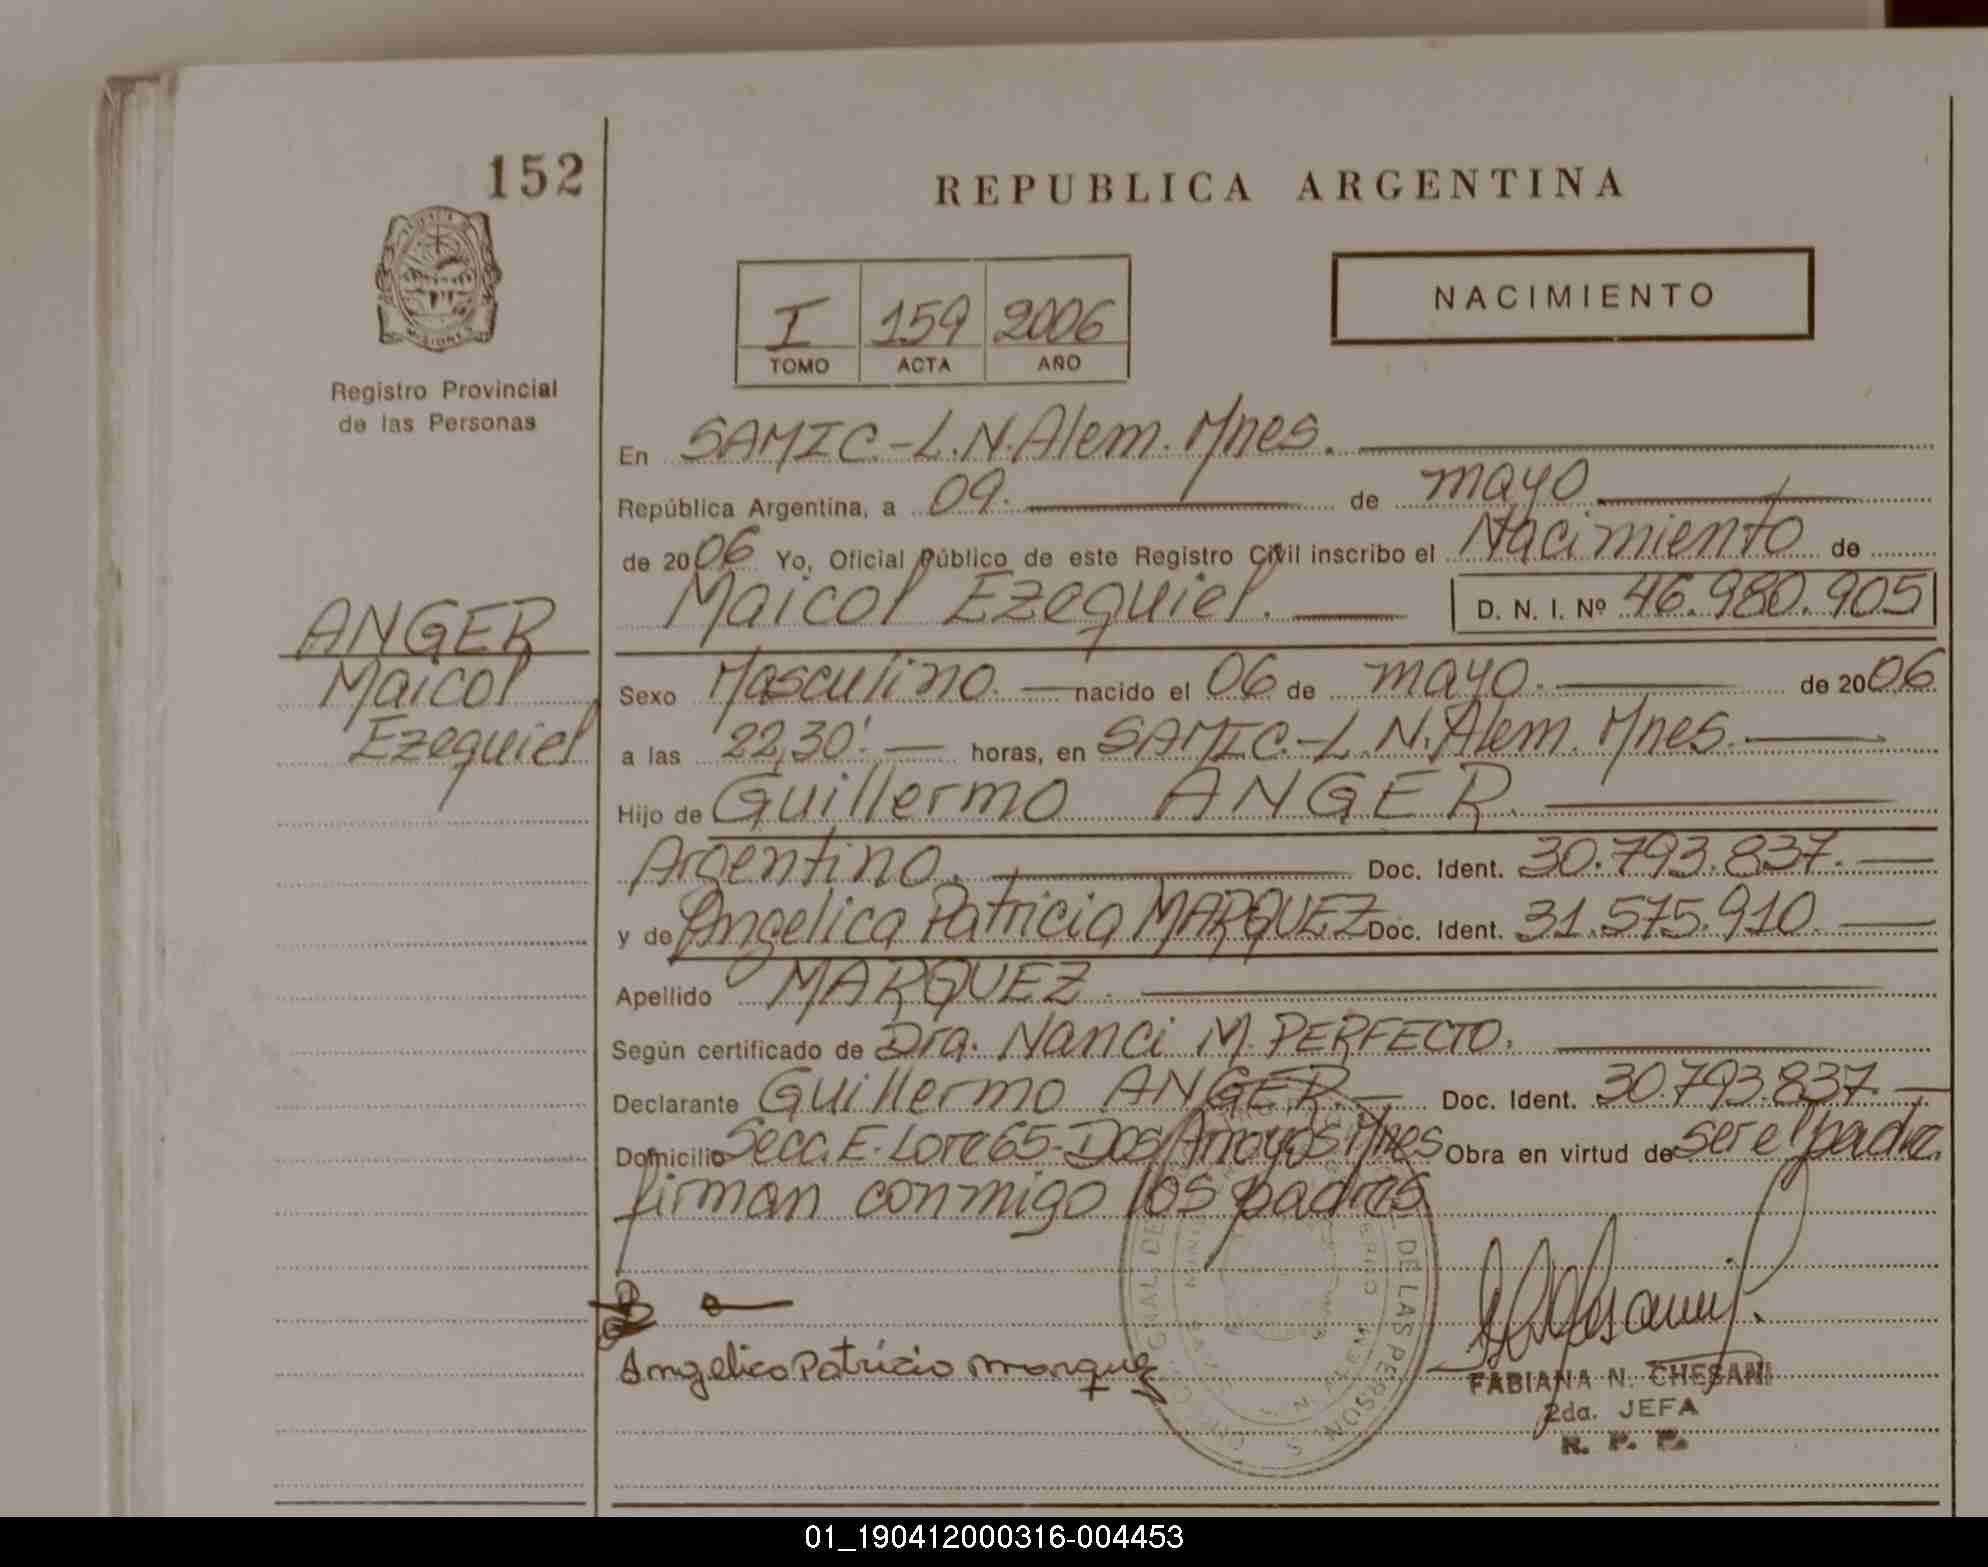 152
REPUBLICA ARGENTINA
MISIONES
Registro Provincial
de las Personas
I 159 2006
TOMO ACTA AÑO
NACIMIENTO
En SAMIC.-L.N.Alem. Mnes.
República Argentina, a 09. de mayo
de 2006 Yo, Oficial Público de este Registro Civil inscribo el Nacimiento de
Maicol Ezequiel. D. N. I. Nº 46.980.905
ANGER
Maicol
Ezequiel
Sexo Masculino. nacido el 06 de mayo. de 2006
a las 22,30'. horas, en SAMIC.-L.N.Alem. Mnes.
Hijo de Guillermo ANGER.
Argentino. Doc. Ident. 30.793.837.
y de Angelica Patricia MARQUEZ Doc. Ident. 31.575.910.
Apellido MARQUEZ.
Según certificado de Dra. Nanci M. PERFECTO.
Declarante Guillermo ANGER. Doc. Ident. 30.793.837.
Domicilio Secc. E. Lote 65-Dos Arroyos Mnes Obra en virtud de ser el padre.
firman conmigo los padres
Angelica Patricia marquez
DE LAS PERSONAS
L. N. ALEM
FABIANA N. CHESANI
2da. JEFA
R. P. P.
01_190412000316-004453